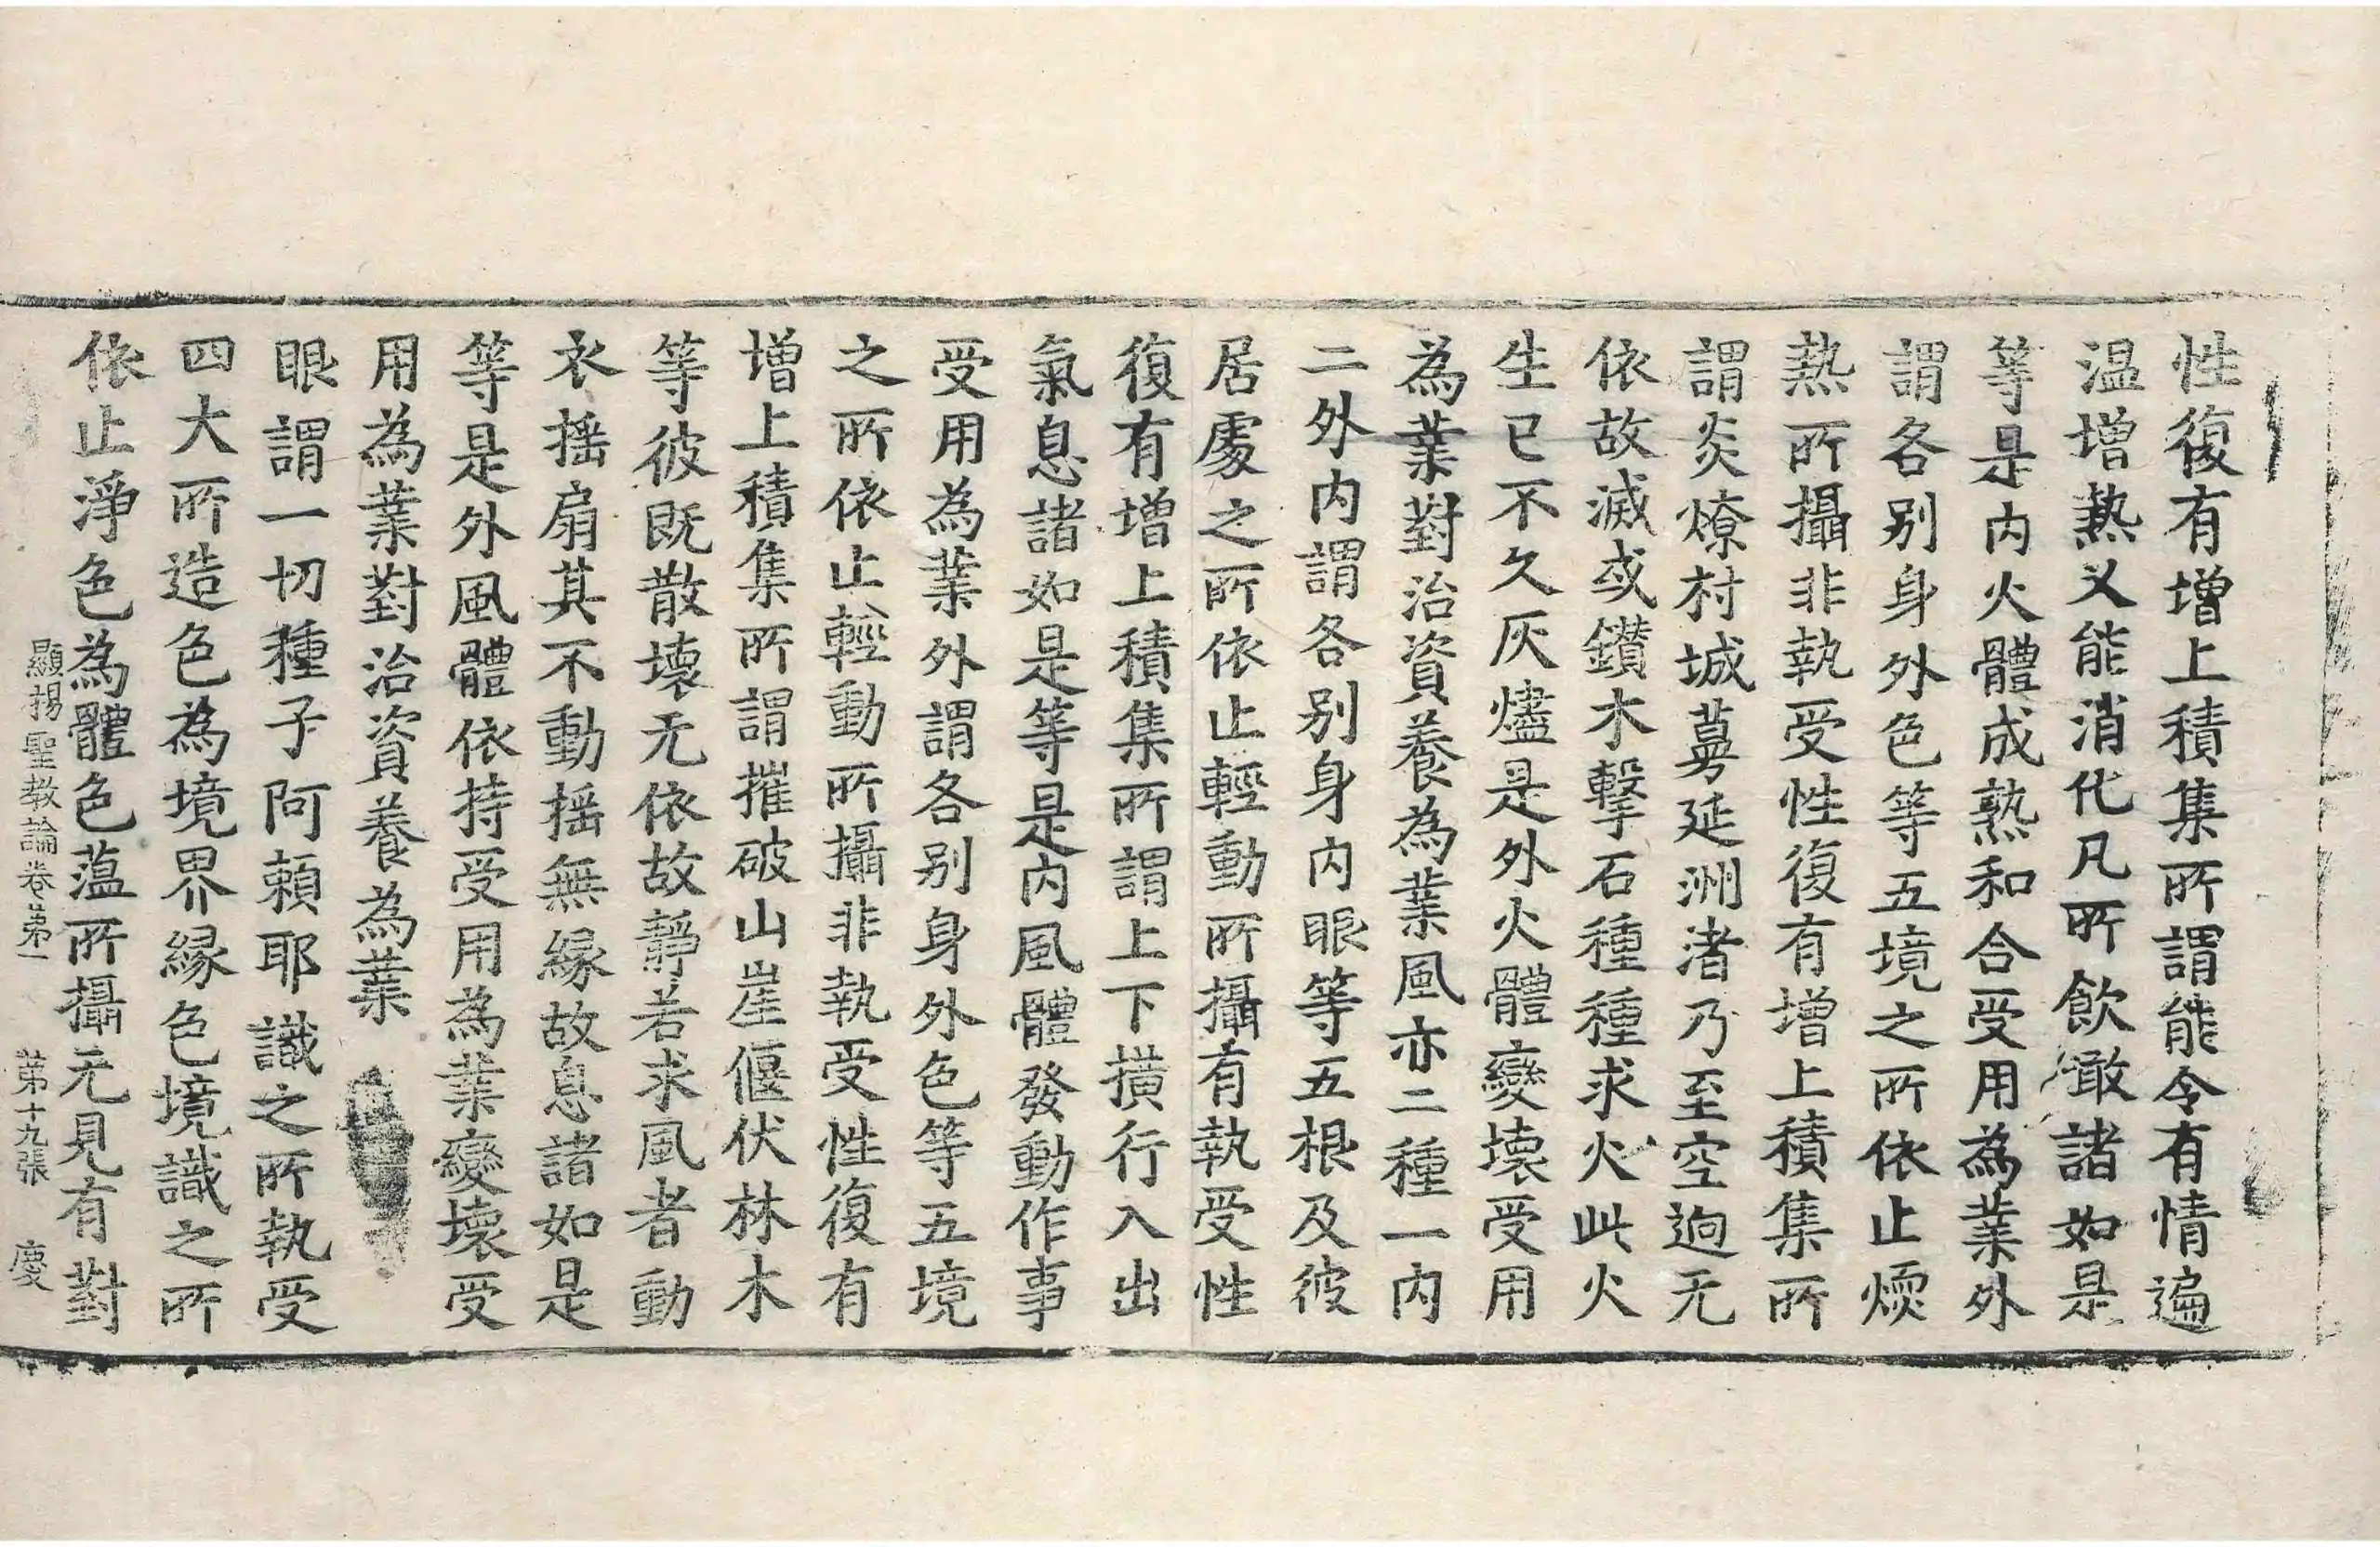 性復有增上積集所謂能令有情遍
温增熱又能消化凡所飲噉諸如是
等是内火體成熟和合受用為業外
謂各别身外色等五境之所依止煗
熱所攝非執受性復有增上積集所
謂炎燎村城蔓延洲渚乃至空逈无
依故滅或鑽木擊石種種求火此火
生已不久灰燼是外火體變壞受用
為業對治資養為業風亦二種一内
二外内謂各别身内眼等五根及彼
居處之所依止輕動所攝有執受性
復有增上積集所謂上下横行入出
氣息諸如是等是内風體發動作事
受用為業外謂各别身外色等五境
之所依止輕動所攝非執受性復有
增上積集所謂摧破山崖偃伏林木
等彼既散壞无依故靜若求風者動
衣摇扇其不動摇無縁故息諸如是
等是外風體依持受用為業變壞受
用為業對治資養為業
眼謂一切種子阿頼耶識之所執受
四大所造色為境界縁色境識之所
依止淨色為體色藴所攝无見有對
顯揚聖教論卷第一 第十九張 慶